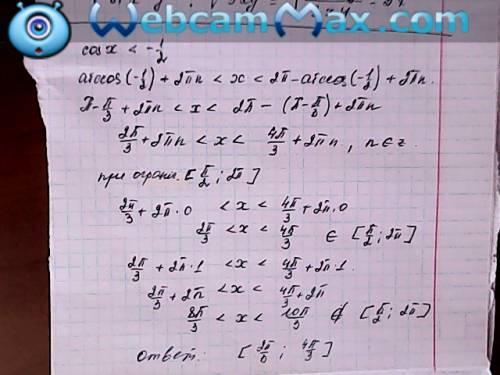 WebcamMax.com
cos x < -1/2
arccos(-1/2) + 2πn < x < 2π - arccos(-1/2) + 2πn
π - π/3 + 2πn < x < 2π - (π - π/3) + 2πn
2π/3 + 2πn < x < 4π/3 + 2πn, n ∈ z
при огранич. [π/2; 2π]
2π/3 + 2π·0 < x < 4π/3 + 2π·0
2π/3 < x < 4π/3 ∈ [π/2; 2π]
2π/3 + 2π·1 < x < 4π/3 + 2π·1
2π/3 + 2π < x < 4π/3 + 2π
8π/3 < x < 10π/3 ∉ [π/2; 2π]
ответ: [2π/3; 4π/3]